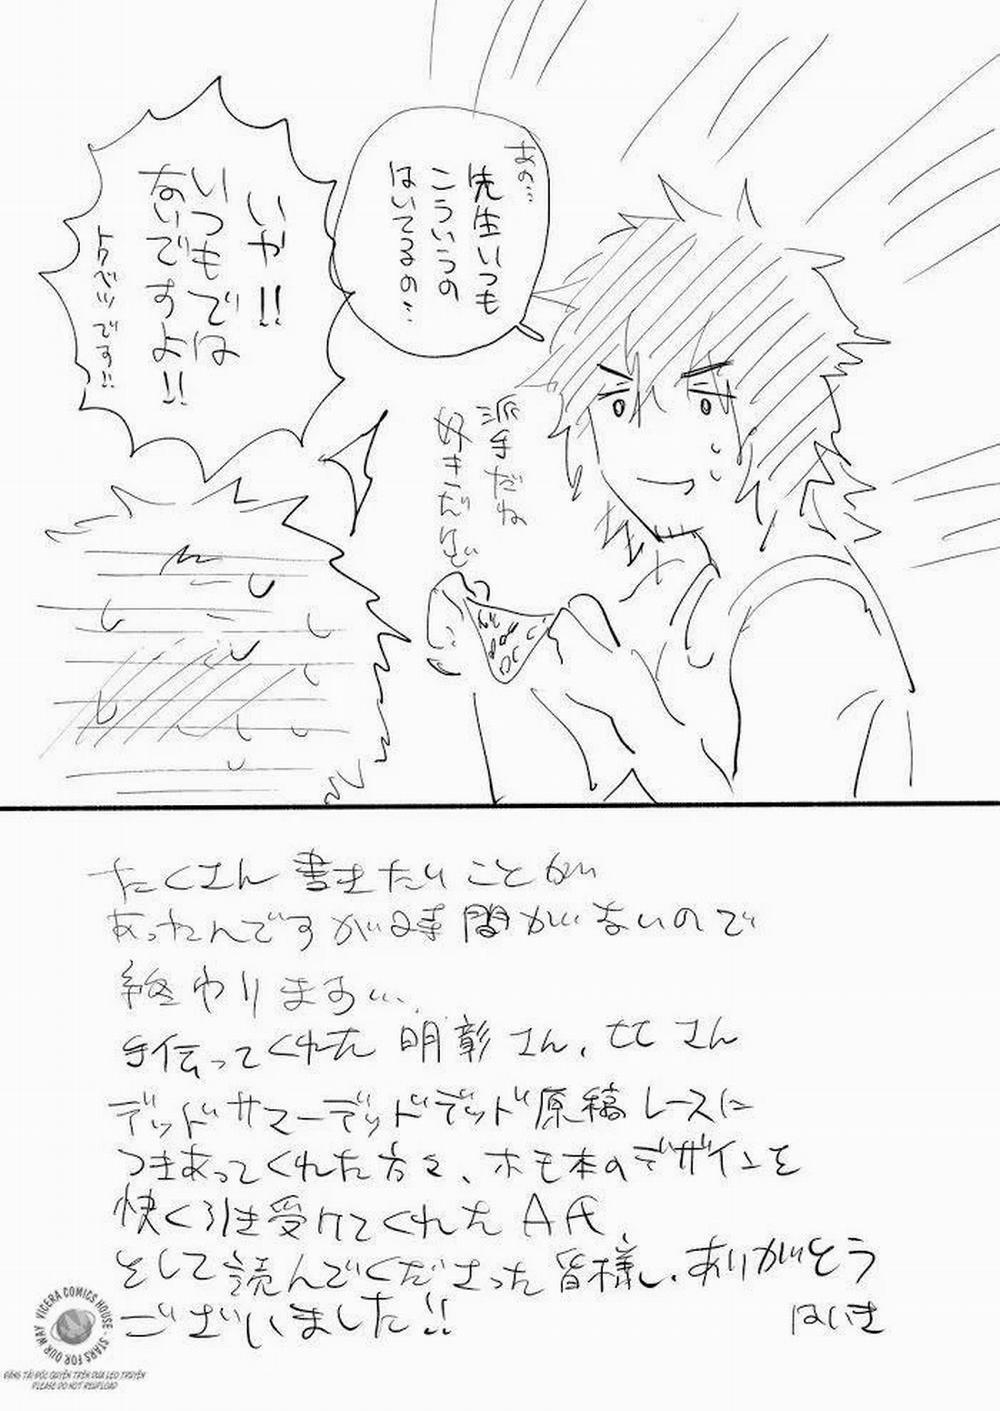 あの…
先生いつも
こういうの
はいてるの…
いや!!
いつもでは
ないですよ!!
トクベツです!!
派手だね
好きだけど
たくさん書きたいことが
あったんですが時間がないので
終わります…
手伝ってくれた明彰さん、七七さん
デッドサマーデッドデッド原稿レースに
つきあってくれた方々、ホモ本のデザインを
快く引き受けてくれたAA、
そして読んでくださった皆様し、ありがとう
ございました!!
はいき
VICERA COMICS HOUSE - STARS FOR OUR WAY
ĐĂNG TẢI ĐỘC QUYỀN TRÊN DUA LEO TRUYỆN
PLEASE DO NOT REUPLOAD